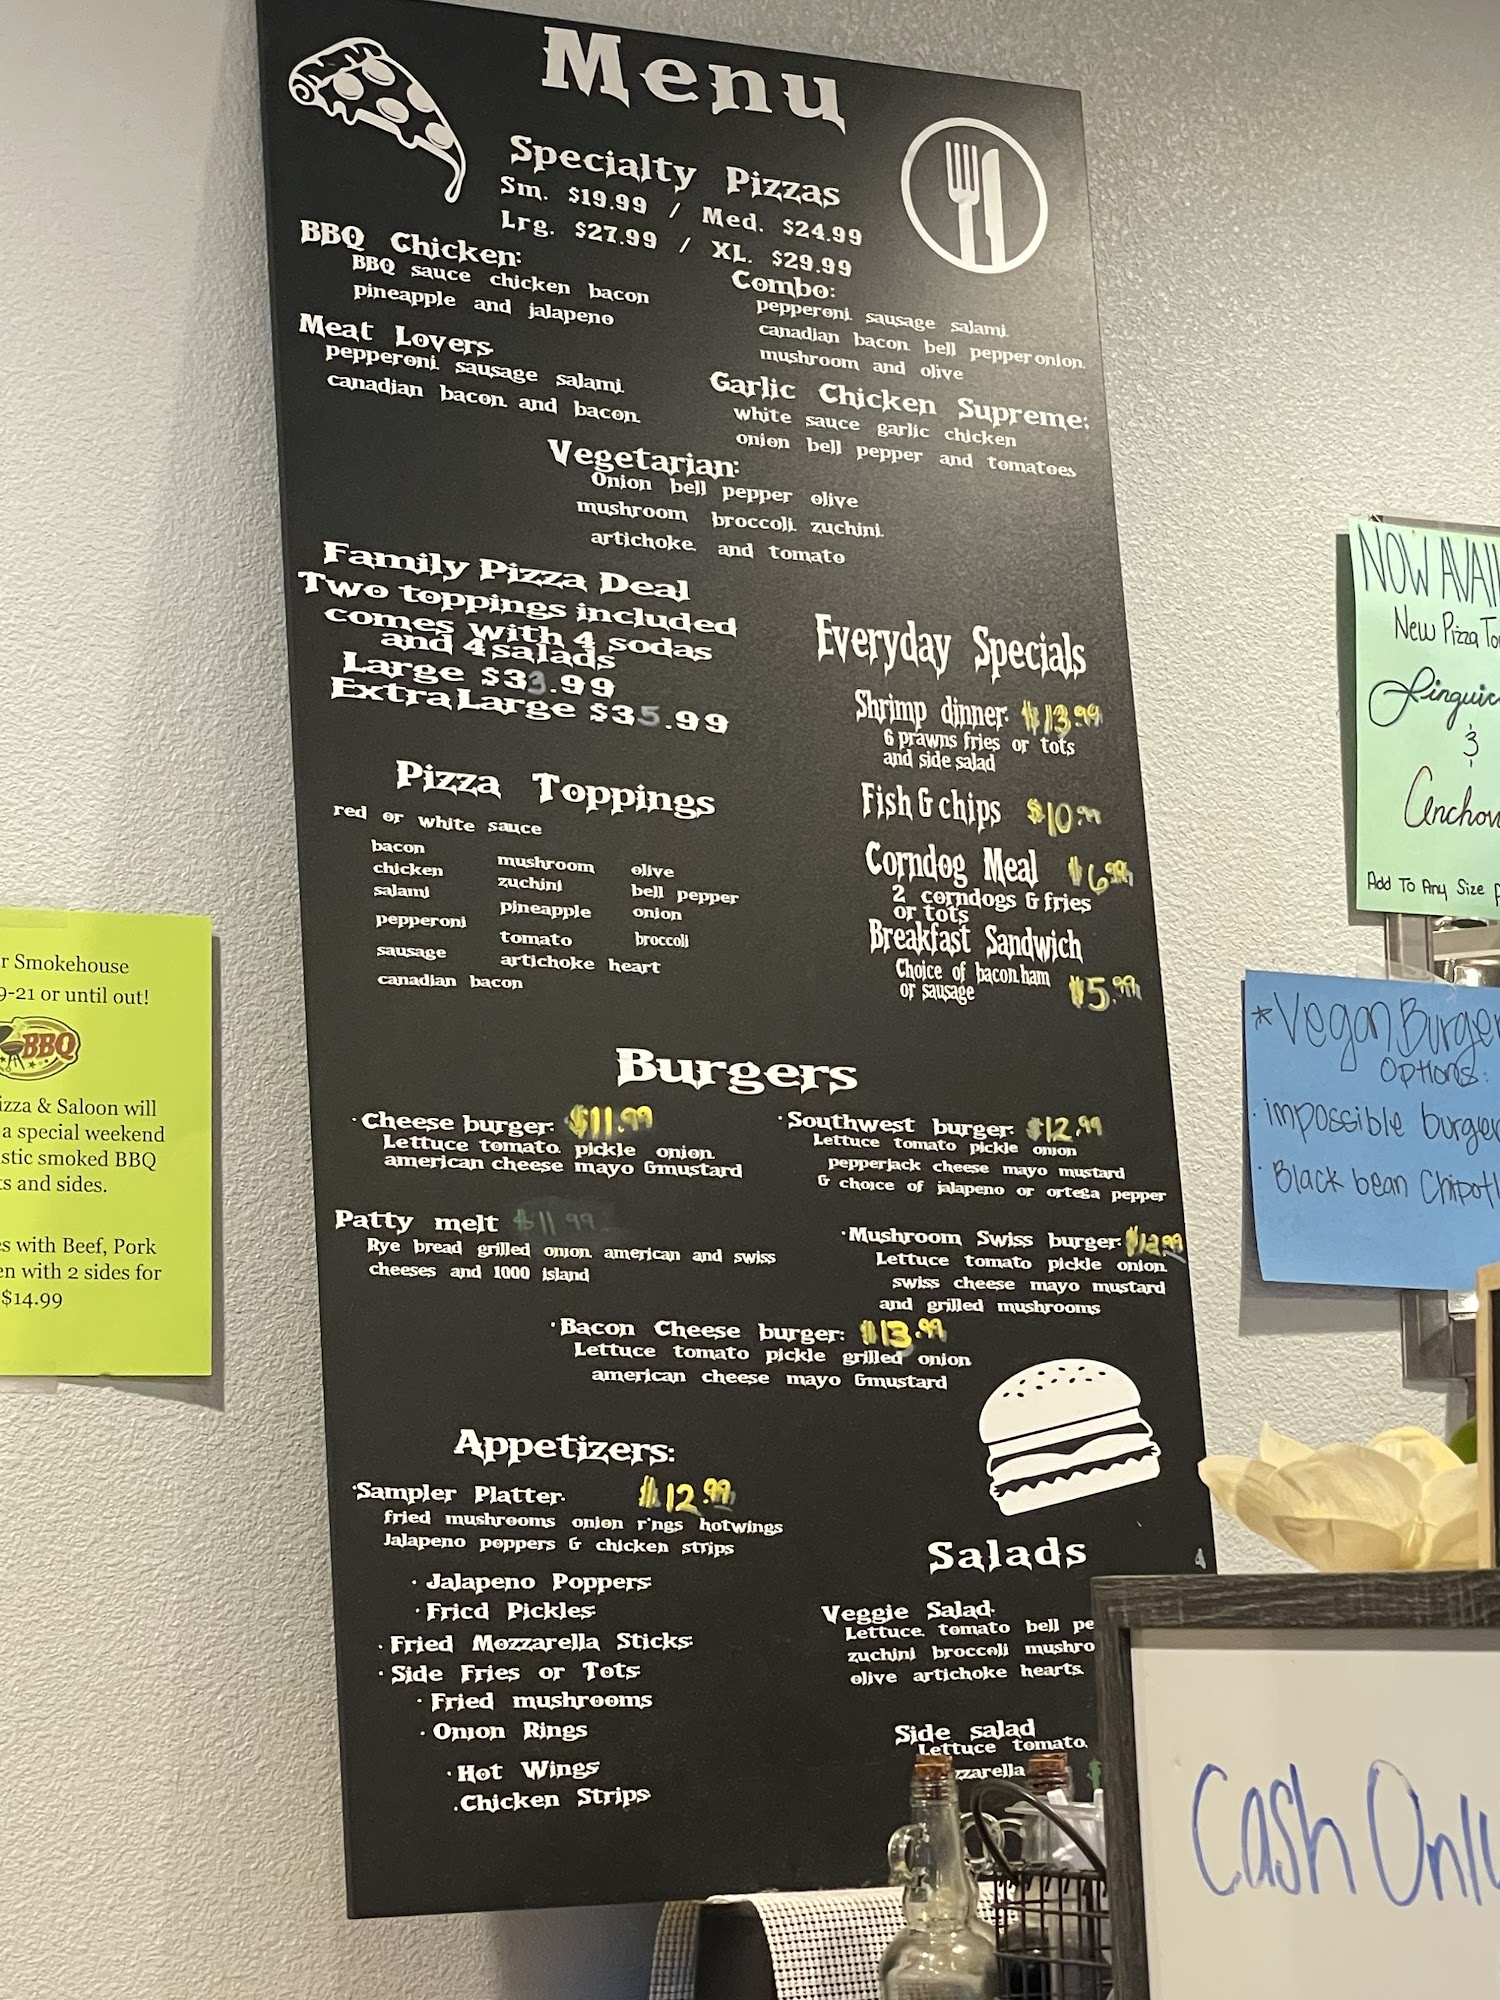 Menu
Specialty Pizzas
Sm. $19.99 / Med. $24.99
Lrg. $27.99 / XL. $29.99
BBQ Chicken:
BBQ sauce chicken bacon
pineapple and jalapeno
Meat Lovers
pepperoni. sausage salami.
canadian bacon. and bacon.
Combo:
pepperoni. sausage salami.
canadian bacon. bell pepper onion.
mushroom and olive
Garlic Chicken Supreme:
white sauce garlic chicken
onion bell pepper and tomatoes
Vegetarian:
Onion bell pepper olive
mushroom broccoli. zuchini.
artichoke. and tomato
Family Pizza Deal
Two toppings included
comes with 4 sodas
and 4 salads
Large $33.99
Extra Large $35.99
Everyday Specials
Shrimp dinner: $13.99
6 prawns fries or tots
and side salad
Fish & chips $10.99
Corndog Meal $6.99
2 corndogs & fries
or tots
Breakfast Sandwich
Choice of bacon ham
or sausage $5.99
Pizza Toppings
red or white sauce
bacon
chicken
salami
pepperoni
sausage
canadian bacon
mushroom
zuchini
pineapple
tomato
artichoke heart
olive
bell pepper
onion
broccoli
Burgers
·Cheese burger: $11.99
Lettuce tomato. pickle onion.
american cheese mayo &mustard
·Southwest burger: $12.99
Lettuce tomato pickle onion
pepperjack cheese mayo mustard
& choice of jalapeno or ortega pepper
Patty melt $11.99
Rye bread grilled onion. american and swiss
cheeses and 1000 island
·Mushroom Swiss burger: $12.99
Lettuce tomato pickle onion.
swiss cheese mayo mustard
and grilled mushrooms
·Bacon Cheese burger: $13.99
Lettuce tomato pickle grilled onion
american cheese mayo &mustard
Appetizers:
·Sampler Platter. $12.99
fried mushrooms onion rings hotwings
Jalapeno poppers & chicken strips
· Jalapeno Poppers
· Fried Pickles
· Fried Mozzarella Sticks
· Side Fries or Tots
· Fried mushrooms
· Onion Rings
· Hot Wings
. Chicken Strips
Salads
Veggie Salad.
Lettuce. tomato bell pe
zuchini broccoli mushro
olive artichoke hearts.
Side salad
Lettuce tomato.
zzarella
r Smokehouse
9-21 or until out!
BBQ
izza & Saloon will
a special weekend
stic smoked BBQ
ts and sides.
es with Beef, Pork
en with 2 sides for
$14.99
NOW AVAI
New Pizza To
Linguic
&
Anchov
Add To Any Size P
*Vegan Burger
Options:
· impossible burger
· Black bean Chipotl
Cash Only